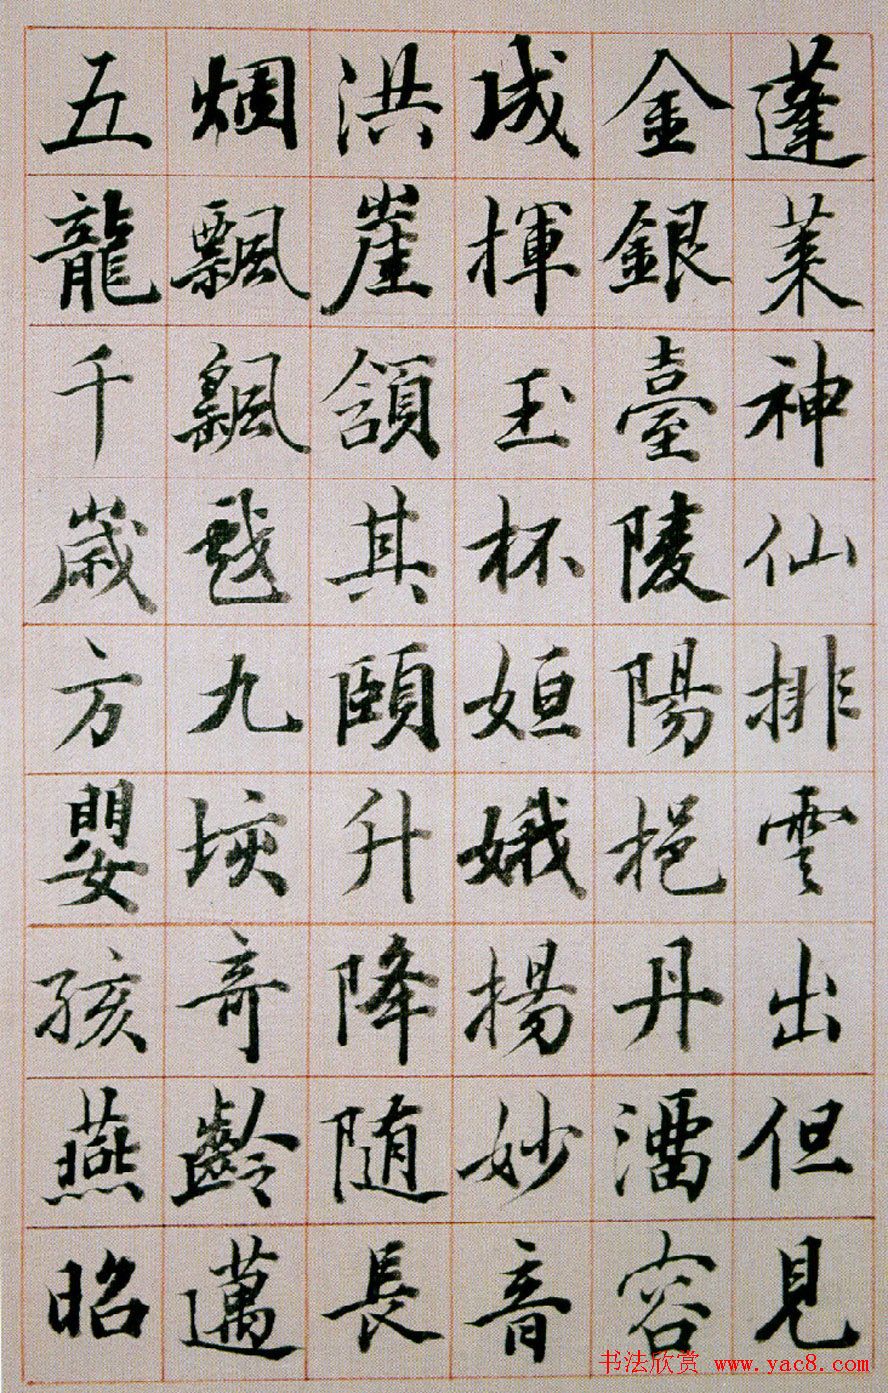 蓬萊神仙排雲出但見
金銀臺陵陽挹丹溜容
成揮玉杯姮娥揚妙音
洪崖頷其頤升降随長
烟飄颻戲九垓奇齡邁
五龍千歲方嬰孩燕昭
书法欣赏 www.yac8.com